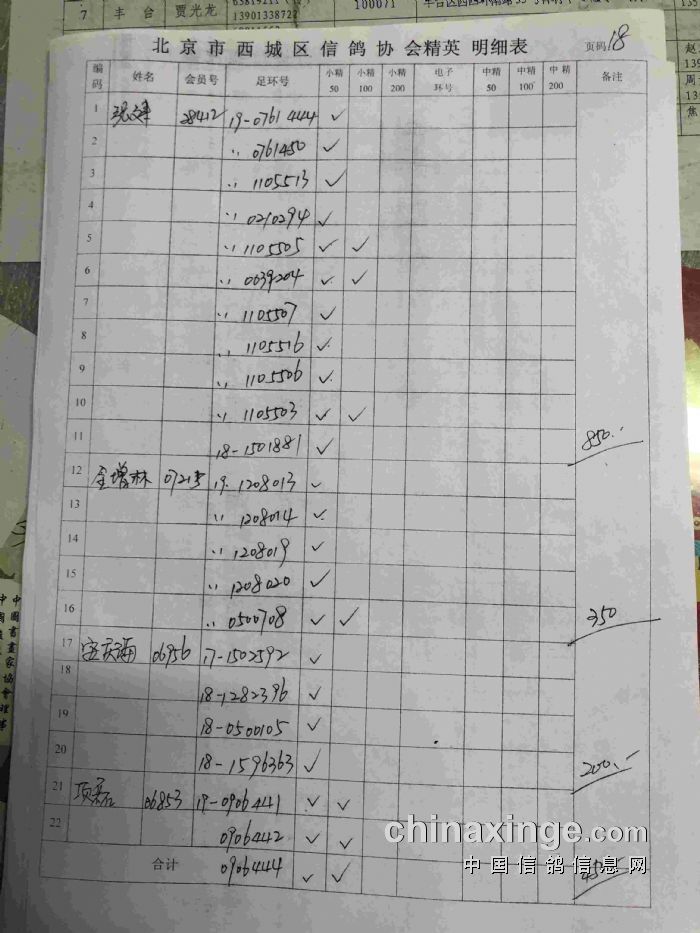 7 丰台 贾光龙 13901338722 100071
北京市西城区信鸽协会精英明细表 页码 18
编码 姓名 会员号 足环号 小精50 小精100 小精200 电子环号 中精50 中精100 中精200 备注
1 28412 19-0761444 ✓
2 〃 0761450 ✓
3 〃 1105513 ✓
4 〃 0210294 ✓
5 〃 1105505 ✓ ✓
6 〃 0639204 ✓ ✓
7 〃 1105507 ✓
8 〃 1105516 ✓
9 〃 1105506 ✓
10 〃 1105503 ✓ ✓
11 18-1501881 ✓ 850.-
12 金增林 07215 19-1208013 ✓
13 〃 1208014 ✓
14 〃 1208019 ✓
15 〃 1208020 ✓
16 〃 0500708 ✓ ✓ 350
17 06956 17-1502592 ✓
18 18-1282396 ✓
19 18-0500105 ✓
20 18-1596363 ✓ 200.-
21 项磊 06853 19-0906441 ✓ ✓
22 0906442 ✓ ✓
合计 0906444 ✓ ✓
chinaxinge.com
中国信鸽信息网